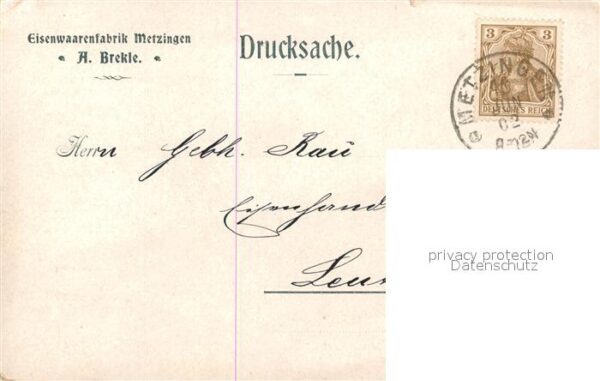 Eisenwaarenfabrik Metzingen
A. Brekle.
Drucksache.
3 3
DEUTSCHES REICH
METZINGEN
JUN
02
Herrn Gebr. Rau
Eisenhand
privacy protection
Datenschutz